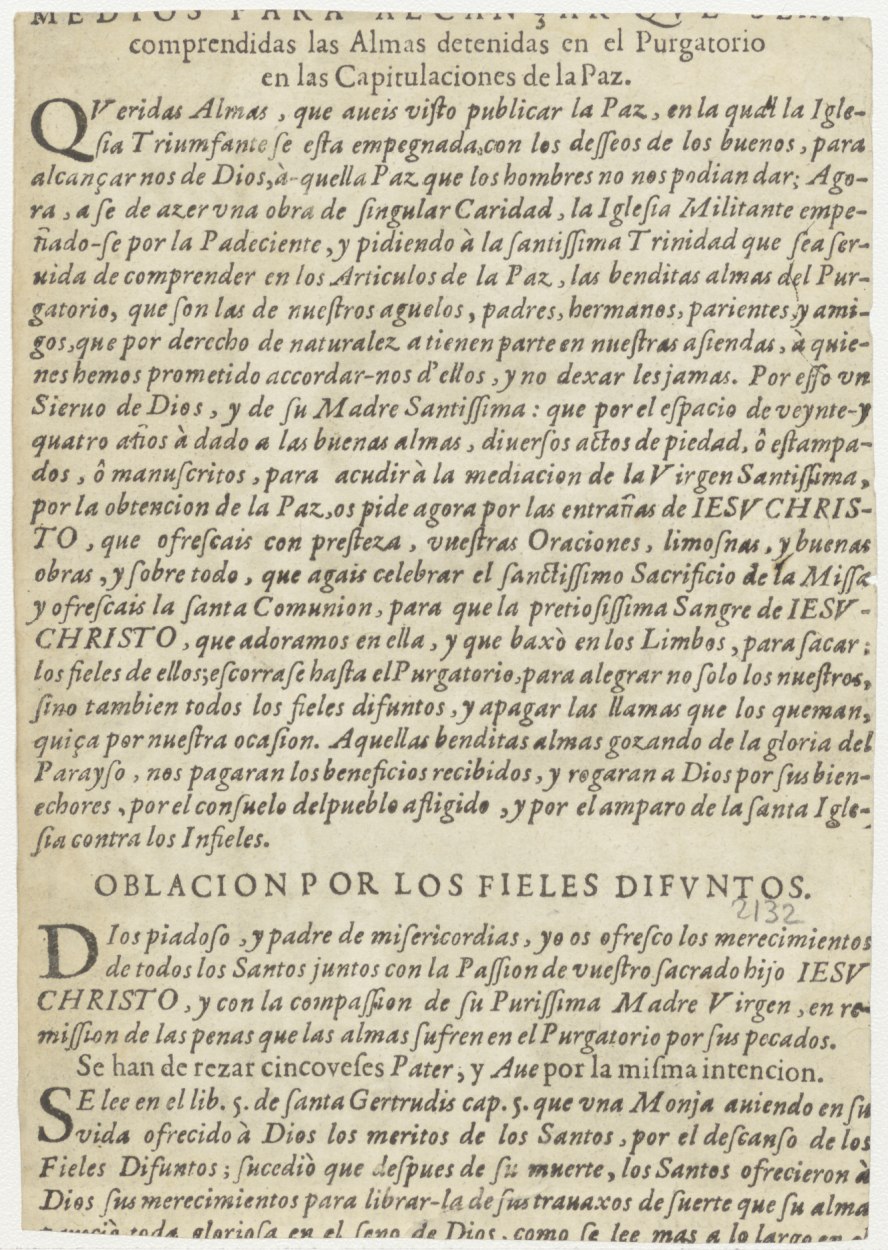 MEDIOS PARA ALCANÇAR QVE SEAN
comprendidas las Almas detenidas en el Purgatorio
en las Capitulaciones de la Paz.
QVeridas Almas, que aueis visto publicar la Paz, en la qual la Igle-
sia Triumfante se esta empegnada, con los desseos de los buenos, para
alcançar nos de Dios, à-quella Paz que los hombres no nos podian dar; Ago-
ra, a se de azer vna obra de singular Caridad, la Iglesia Militante empe-
ñado-se por la Padeciente, y pidiendo à la santissima Trinidad que sea ser-
uida de comprender en los Articulos de la Paz, las benditas almas del Pur-
gatorio, que son las de nuestros aguelos, padres, hermanos, parientes, y ami-
gos, que por derecho de naturalez a tienen parte en nuestras asiendas, à quie-
nes hemos prometido accordar-nos d'ellos, y no dexar les jamas. Por esso vn
Sieruo de Dios, y de su Madre Santissima: que por el espacio de veynte-y
quatro años à dado a las buenas almas, diuersos actos de piedad, ô estampa-
dos, ô manuscritos, para acudir à la mediacion de la Virgen Santissima,
por la obtencion de la Paz, os pide agora por las entrañas de IESV CHRIS-
TO, que ofrescais con presteza, vuestras Oraciones, limosnas, y buenas
obras, y sobre todo, que agais celebrar el sanctissimo Sacrificio de la Missa
y ofrescais la santa Comunion, para que la pretiosissima Sangre de IESV-
CHRISTO, que adoramos en ella, y que baxò en los Limbos, para sacar:
los fieles de ellos; escorrase hasta el Purgatorio, para alegrar no solo los nuestros,
sino tambien todos los fieles difuntos, y apagar las llamas que los queman,
quiça por nuestra ocasion. Aquellas benditas almas gozando de la gloria del
Parayso, nos pagaran los beneficios recibidos, y rogaran a Dios por sus bien-
echores, por el consuelo del pueblo afligido, y por el amparo de la santa Igle-
sia contra los Infieles.
OBLACION POR LOS FIELES DIFVNTOS.
2132
DIos piadoso, y padre de misericordias, yo os ofresco los merecimientos
de todos los Santos juntos con la Passion de vuestro sacrado hijo IESV
CHRISTO, y con la compassion de su Purissima Madre Virgen, en re-
mission de las penas que las almas sufren en el Purgatorio por sus pecados.
Se han de rezar cinco veses Pater, y Aue por la misma intencion.
SE lee en el lib. 5. de santa Gertrudis cap. 5. que vna Monja auiendo en su
vida ofrecido à Dios los meritos de los Santos, por el descanso de los
Fieles Difuntos; sucediò que despues de su muerte, los Santos ofrecieron à
Dios sus merecimientos para librar-la de sus trauaxos de suerte que su alma
pareciò toda gloriosa en el seno de Dios, como se lee mas a lo largo en el